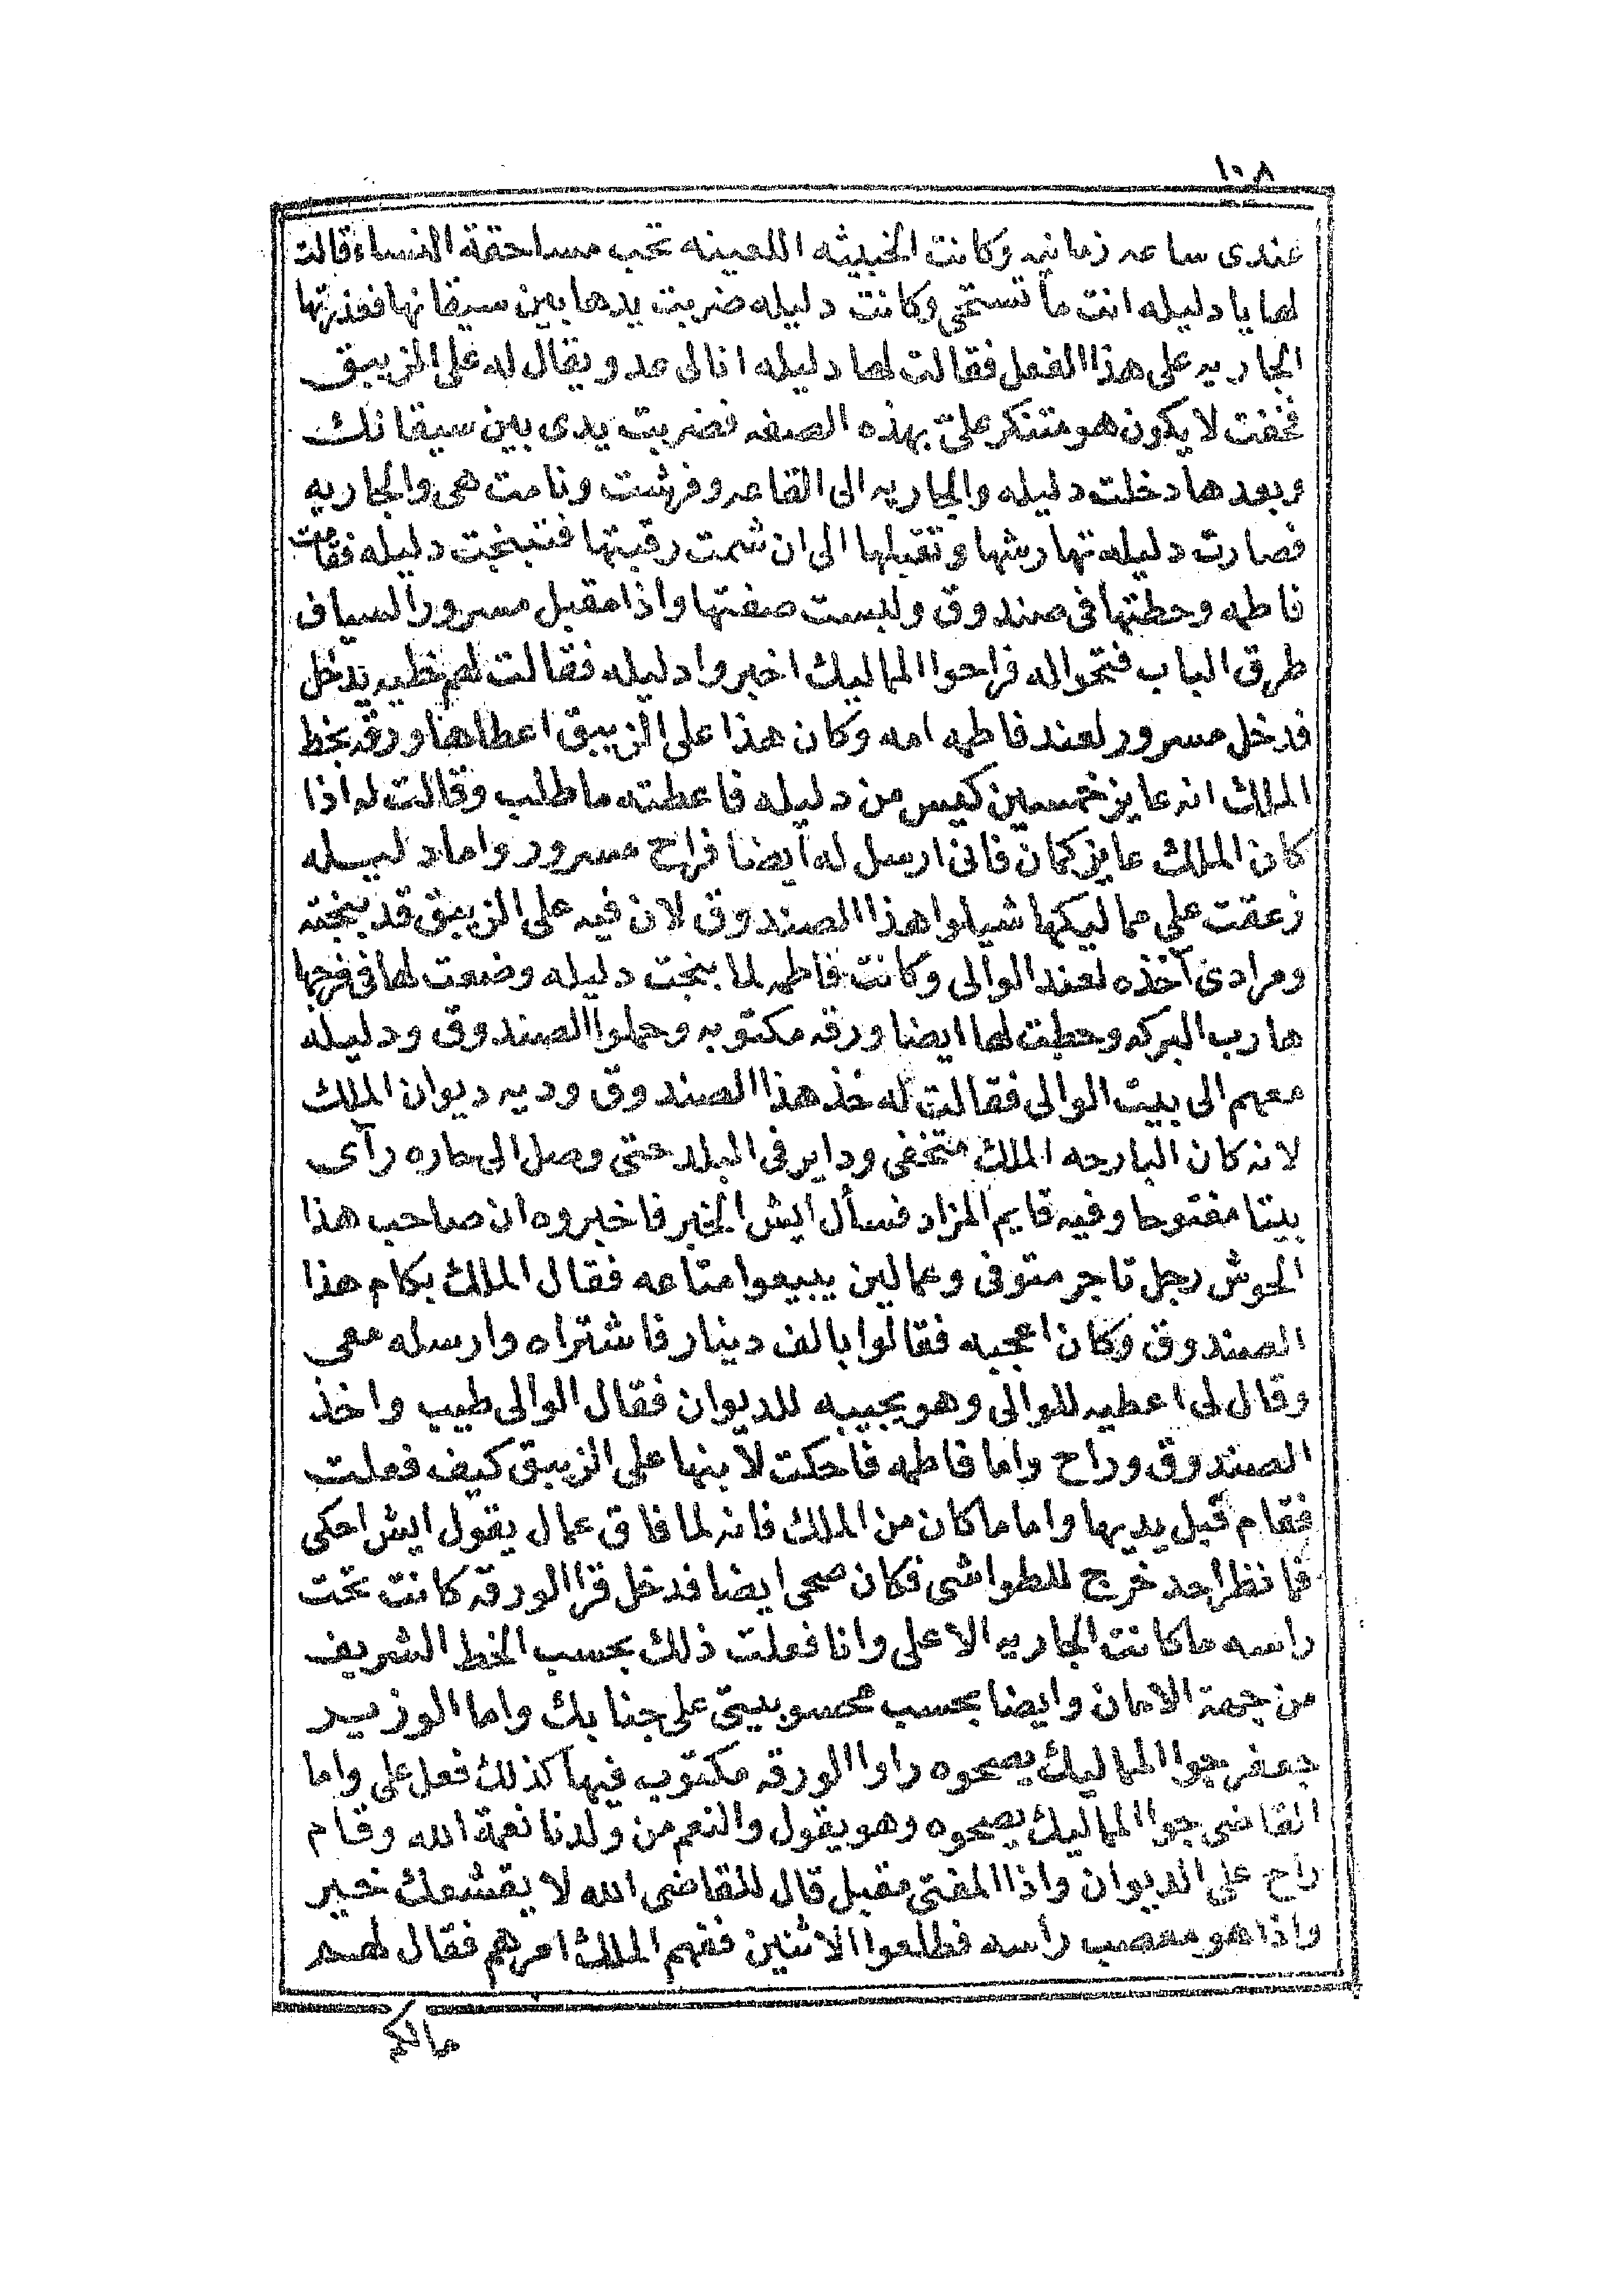 ١٠٨
عندى ساعه زمانيه وكانت الخبيثه اللعينه تحب مساحقة النساء قالت
لها يا دليله انت ما تستحى وكانت دليله ضربت يدها بين سيقانها فعذرتها
الجاريه على هذا الفعل فقالت لها دليله انا لى عدو يقال له على الزيبق
فخفت لا يكون هو متنكر على بهذه الصفه فضربت يدى بين سيقانك
وبعدها دخلت دليله والجاريه الى القاعه وفرشت ونامت هى والجاريه
فصارت دليله تهارشها وتقبلها الى ان شمت رقبتها فتبنجت دليله فقامت
فاطمه وحطتها فى صندوق ولبست صفتها واذا مقبل مسرور السياف
طرق الباب فتحوا له فراحوا المماليك اخبروا دليله فقالت لهم خليه يدخل
فدخل مسرور لعند فاطمه امه وكان هذا على الزيبق اعطاها ورقه بخط
الملك انه عايز خمسين كيس من دليله فاعطته ما طلب وقالت له اذا
كان الملك عايز كمان فانى ارسل له ايضا فراح مسرور واما دليله
زعقت على مماليكها شيلوا هذا الصندوق لان فيه على الزيبق قد بنجته
ومرادى آخذه لعند الوالى وكانت فاطمه لما بنجت دليله وضعت لها فى فرجها
هارب البركه وحطت لها ايضا ورقه مكتوبه وحملوا الصندوق ودليله
معهم الى بيت الوالى فقالت له خذ هذا الصندوق وديه ديوان الملك
لانه كان البارحه الملك متخفى وداير فى البلد حتى وصل الى حاره رآى
بيتا مفتوحا وفيه قايم المزاد فسأل ايش الخبر فاخبروه ان صاحب هذا
الحوش رجل تاجر متوفى وعمالين يبيعوا متاعه فقال الملك بكام هذا
الصندوق وكان اعجبه فقالوا بالف دينار فاشتراه وارسله معى
وقال لى اعطيه للوالى وهو يجيبه للديوان فقال الوالى طيب واخذ
الصندوق وراح واما فاطمه فاحكت لابنها على الزيبق كيف فعلت
فقام قبل يديها واما ما كان من الملك فانه لما فاق عمال يقول ايش احكى
فما نظر احد خرج للطواشى فكان صحى ايضا فدخل قرا الورقه كانت تحت
راسه ما كانت الجاريه الا على وانا فعلت ذلك بحسب الخط الشريف
من جهة الامان وايضا بحسب محسوبيتى على جنابك واما الوزير
جعفر جوا المماليك يصحوه راوا الورقه مكتوب فيها كذلك فعل على واما
القاضى جوا المماليك يصحوه وهو يقول والنعم من ولدنا نعمة الله وقام
راح على الديوان واذا المفتى مقبل قال للقاضى الله لا يقشعك خير
واذا هو معصب رأسه فطلعوا الاثنين ففهم الملك امرهم فقال لهم
مالكم